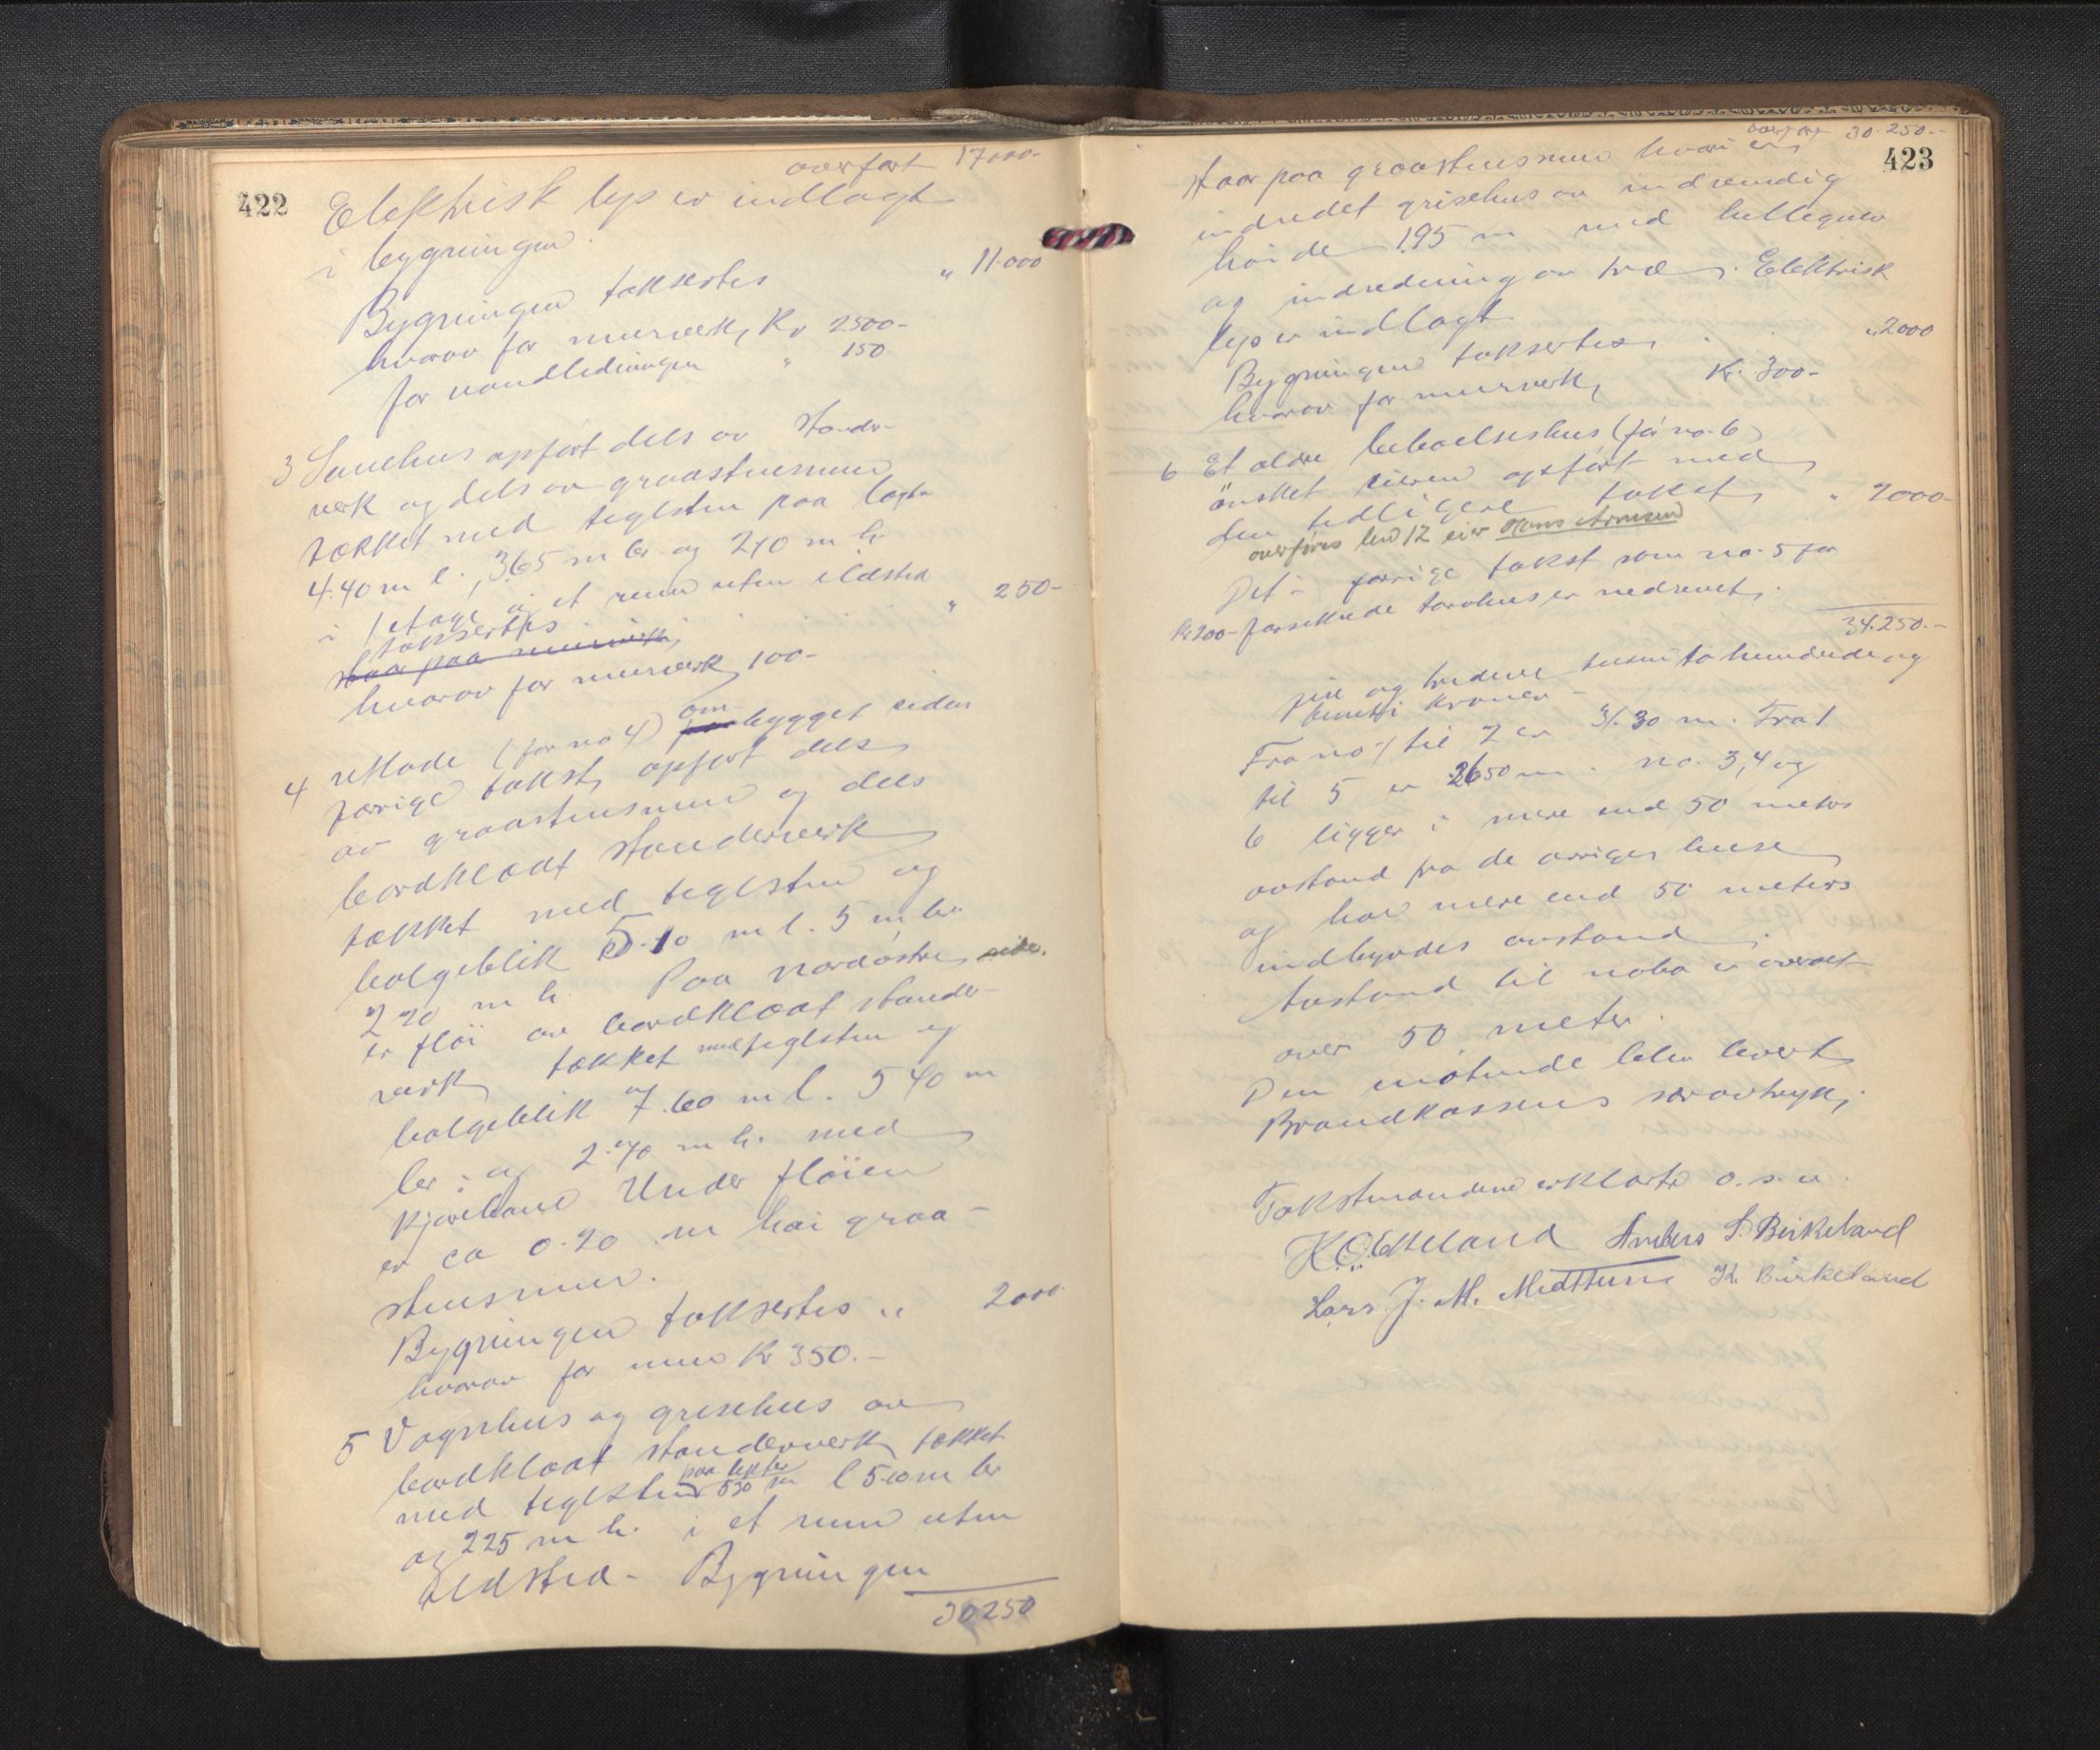 422
overført 17000-
Elektrisk lys er indlagt
i bygningen.
Bygningen takseres " 11.000
hvorav for murverk, Kr 2500-
for vandledningen " 150
3 Sauehus opført dels av stander-
verk og dels av graastensmur
tækket med teglsten paa lægter
4.40 m l., 365 m br og 240 m h.
i 1 etage a et rum uten ildsted
takseres " 250-
staar paa
hvorav for murverk 100-
4 Utlade (før no 4) ombygget siden
forrige takst, opført dels
av graastensmur og dels
bordklædt standerverk
tækket med teglsten og
bølgeblik 5.10 m l. 5 m br
2 70 m h. Paa nordøstre side.
er fløi av bordklædt stander-
verk tækket med teglsten og
bølgeblik 7.60 m l. 5 40 m
br. og 2.70 m h. med
kjørebane Under fløien
er ca 0.90 m høi graa-
stensmur.
Bygningen takseres " 2000-
hvorav for mur Kr 350.-
5 Vognhus og grisehus av
bordklædt standerverk, tækket
med teglsten paa legter 530 m l 5.00 m br
og 225 m h. i et rum uten
ildsted - Bygningen
30250
423
overført 30.250.-
staar paa graastensmur hvori er
indredet grisehus av indvendig
høide 1.95 m med hellegulv
og indredning av træ. Elektrisk
lys er indlagt.
Bygningen takseres " 2000
hvorav for murverk, Kr. 300-
6 Et ældre beboelseshus (før no. 6)
ønsket eieren opført med
den tidligere takst, " 2000-
overføres lnr 12 eier Hans Arnesen
Det i forrige takst som no. 5 for
Kr 200- forsikrede torvhus er nedrevet.
34.250.-
fire og tredeve tusen to hundrede og
femti kroner -
Fra no 1 til 2 er 31.30 m. Fra 1
til 5 er 2650 m. no. 3,4 og
6 ligger i mere end 50 meters
avstand fra de øvrige huse
og har mere end 50 meters
indbyrdes avstand.
Avstand til nabo er overalt
over 50 meter.
Den møtende blev levert
Brandkassens særavtryk.
Takstmændene erklærte o. s. v.
K. O. Eitteland Anders S. Birkeland
Lars J. M. Midttun K. Birkeland